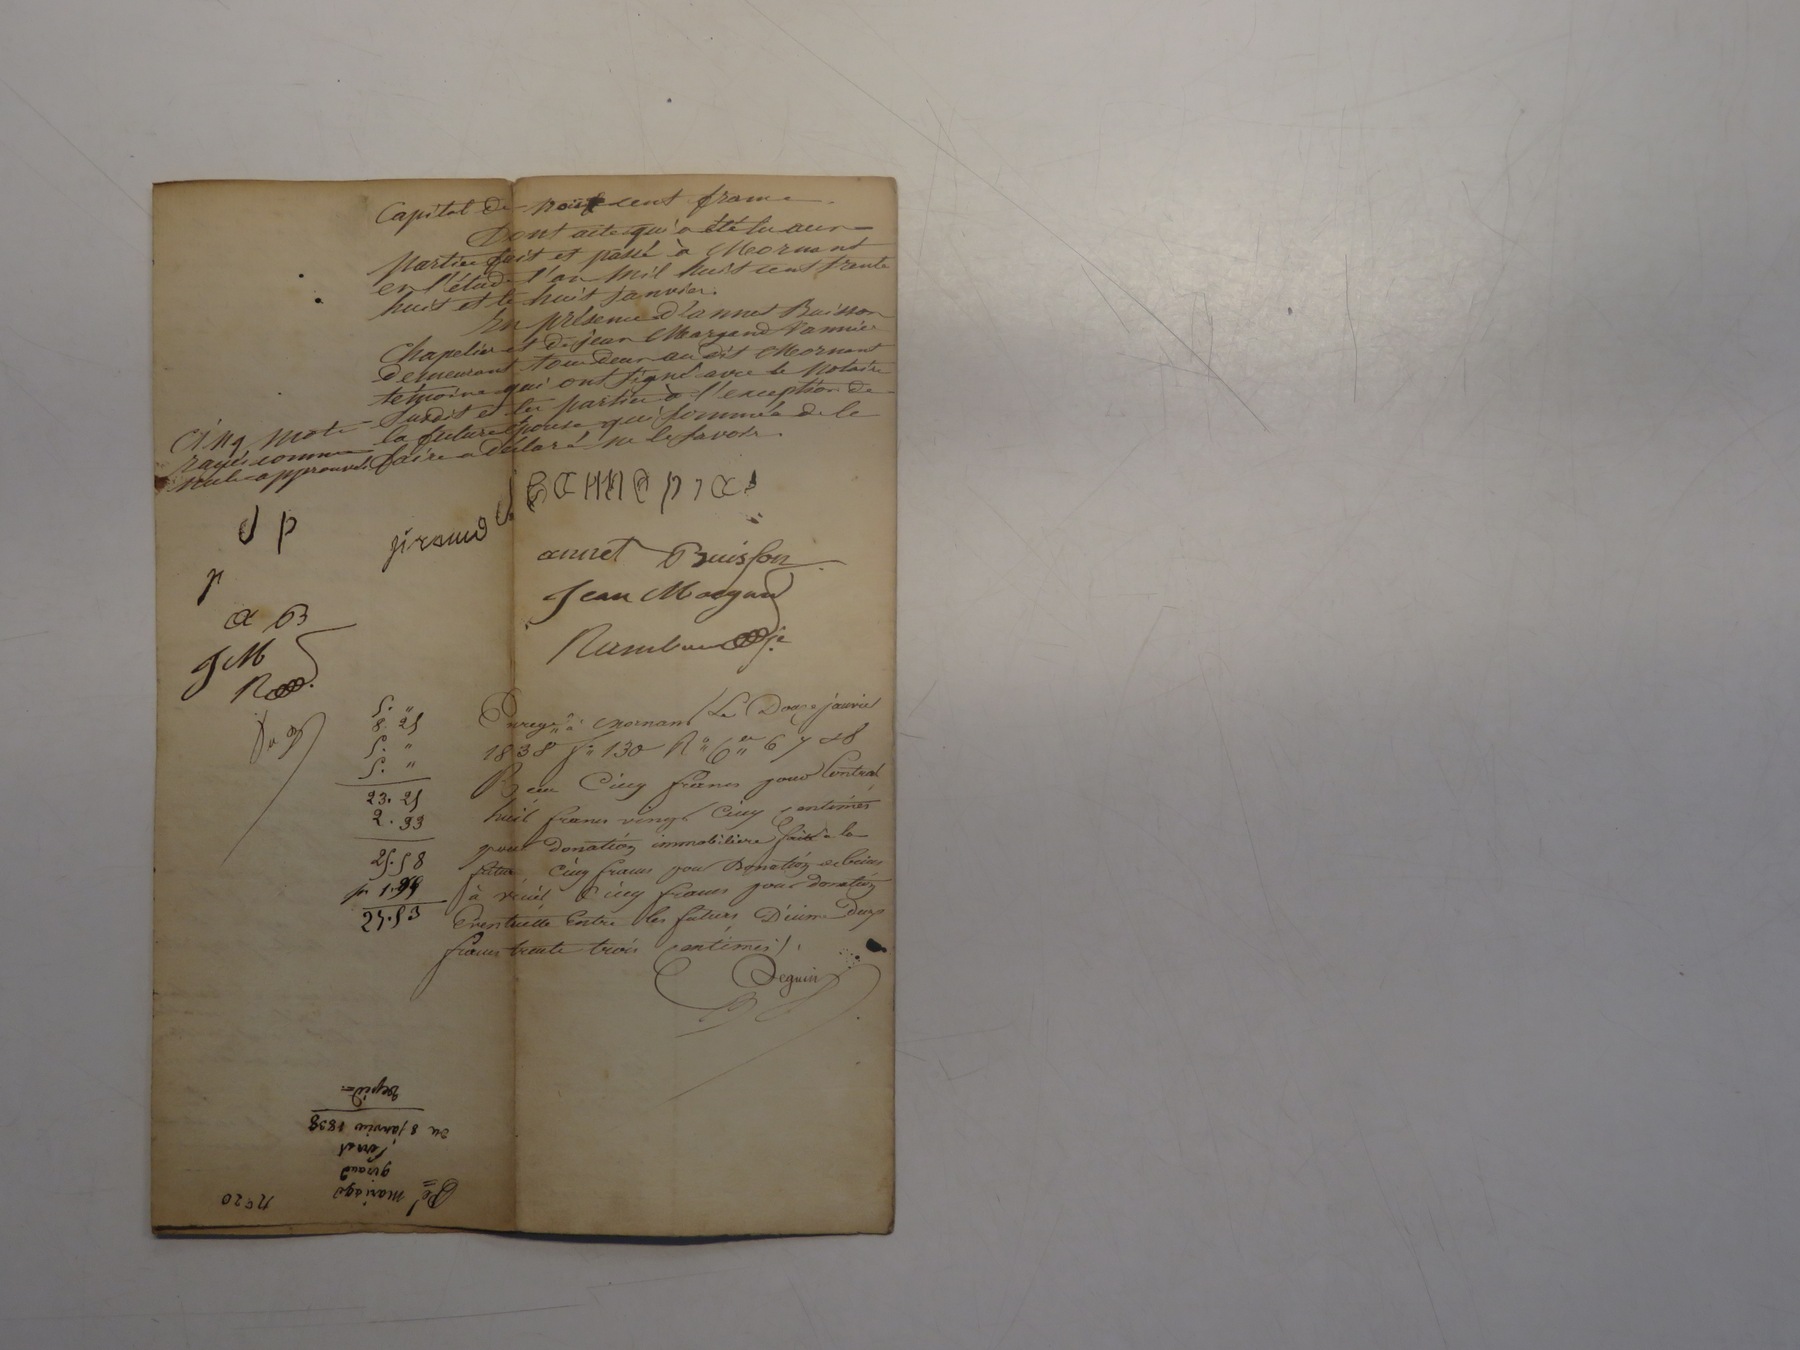 Capital de neuf cent franc.
Dont acte qui a été lu aux
partie fait et passé à Mornant
en l'étude l'an mil huit cent trente
huit et le huit janvier.
En présence d'annet Buisson
Chapelier et de jean Morgand Vannier
demeurant tous deux au dit Mornant
témoins qui ont signé avec le Notaire
susdit et les partie à l'exception de
la future épouse qui sommée de le
faire a déclaré ne le savoir.
Cinq mots
rayés comme
nuls approuvés
J P
giraud
P
annet Buisson
a B
Jean Morgand
J M
R
5. "
8. 25
5. "
5. "
23. 25
2. 33
25. 58
27. 53
Enregné à Mornant Le Douze janvier
1838 fo 130 Ro Cen 6 7 et 8
Reçu Cinq francs pour Contrat
huit francs vingt Cinq centimes
pour donation immobilière faite à la
future Cinq francs pour Donation de biens
à venir Cinq francs pour donation
éventuelle Entre les futurs Décime Deux
francs trente trois centimes.
Seguin
No 20
mariage
giraud
du 8 janvier 1838